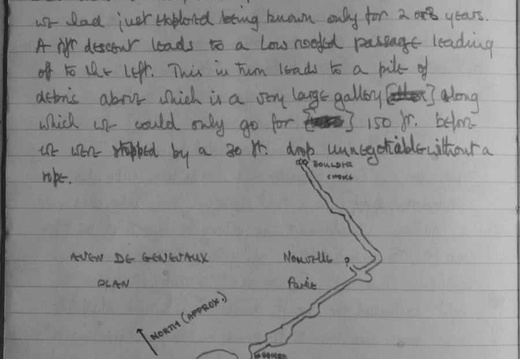 we had just explored being known only for 2 or 3 years.
A ft descent leads to a low roofed passage leading
off to the left. This in turn leads to a pile of
debris above which is a very large gallery [ ] along
which we could only go for [ ] 150 ft. before
we were stopped by a 30 ft. drop unnegotiable without a
rope.
BOULDER
CHOKE
AVEN DE GENEVAUX
PLAN
NOUVELLE
PARTIE
NORTH (APPROX.)